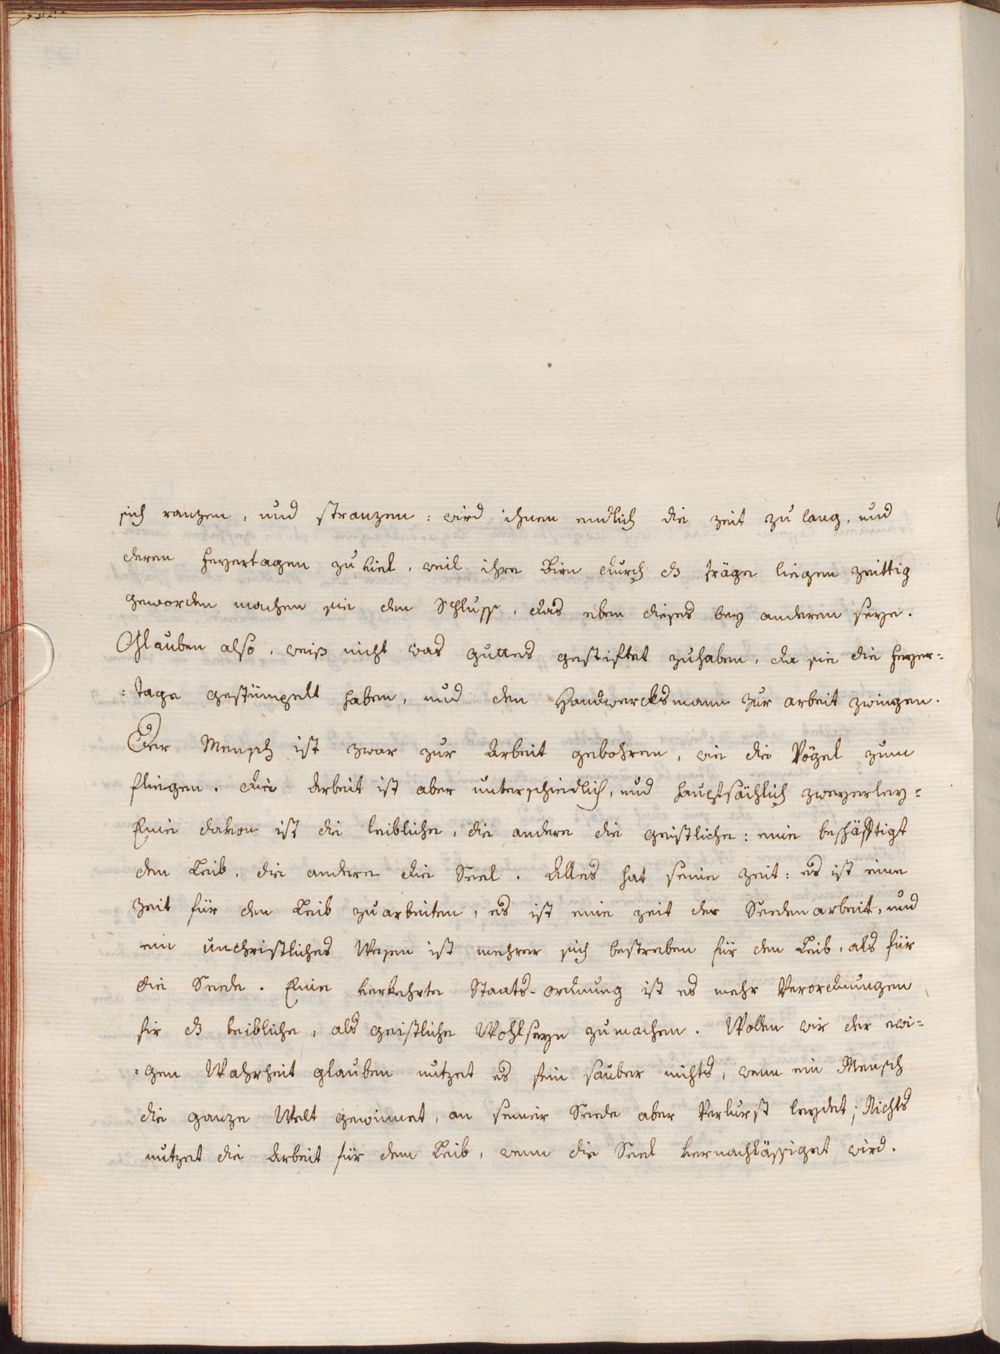 sich ranzen, und stranzen: wird ihnen endlich die zeit zu lang, und
deren Feyertagen zu viel, weil ihre Birn durch dz träge liegen zeittig
geworden machen sie den Schluss, das eben dieses bey anderen seye.
Glauben also, weiß nicht was guttes gestiftet zuhaben, da sie die Feyer=
:tage gestümpelt haben, und den Handwercksmann zur arbeit zwingen.
Der Mensch ist zwar zur Arbeit gebohren, wie die Vögel zum
fliegen. Die Arbeit ist aber unterschiedlich, und hauptsächlich zweyerley=
Eine davon ist die leibliche, die andere die geistliche: eine beschäftigt
den Leib, die andere die Seel. Alles hat seine zeit: es ist eine
zeit für den Leib zu arbeiten, es ist eine zeit der Seelen arbeit, und
ein unchristliches Wesen ist mehrer sich bestreben für den Leib, als für
die Seele. Eine verkehrte Staats-ordnung ist es mehr Verordnungen
für dz leibliche, als geistliche Wohlseyn zumachen. Wollen wir der ewi=
:gen Wahrheit glauben nutzet es fein sauber nichts, wenn ein Mensch
die ganze Welt gewinnet, an seiner Seele aber Verlurst leydet; Nichts
nutzet die Arbeit für dem Leib, wenn die Seel vernachlässiget wird.